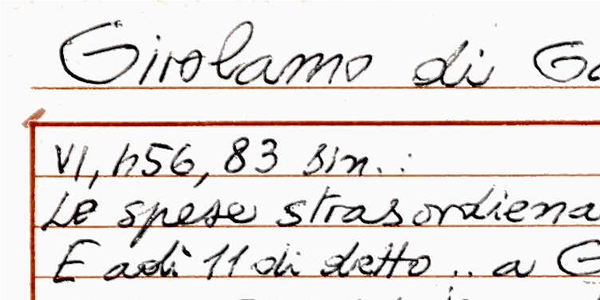 Girolamo di
VI, 1156, 83 sin.:
Le spese strasordiena
E adì 11 di detto .. a G